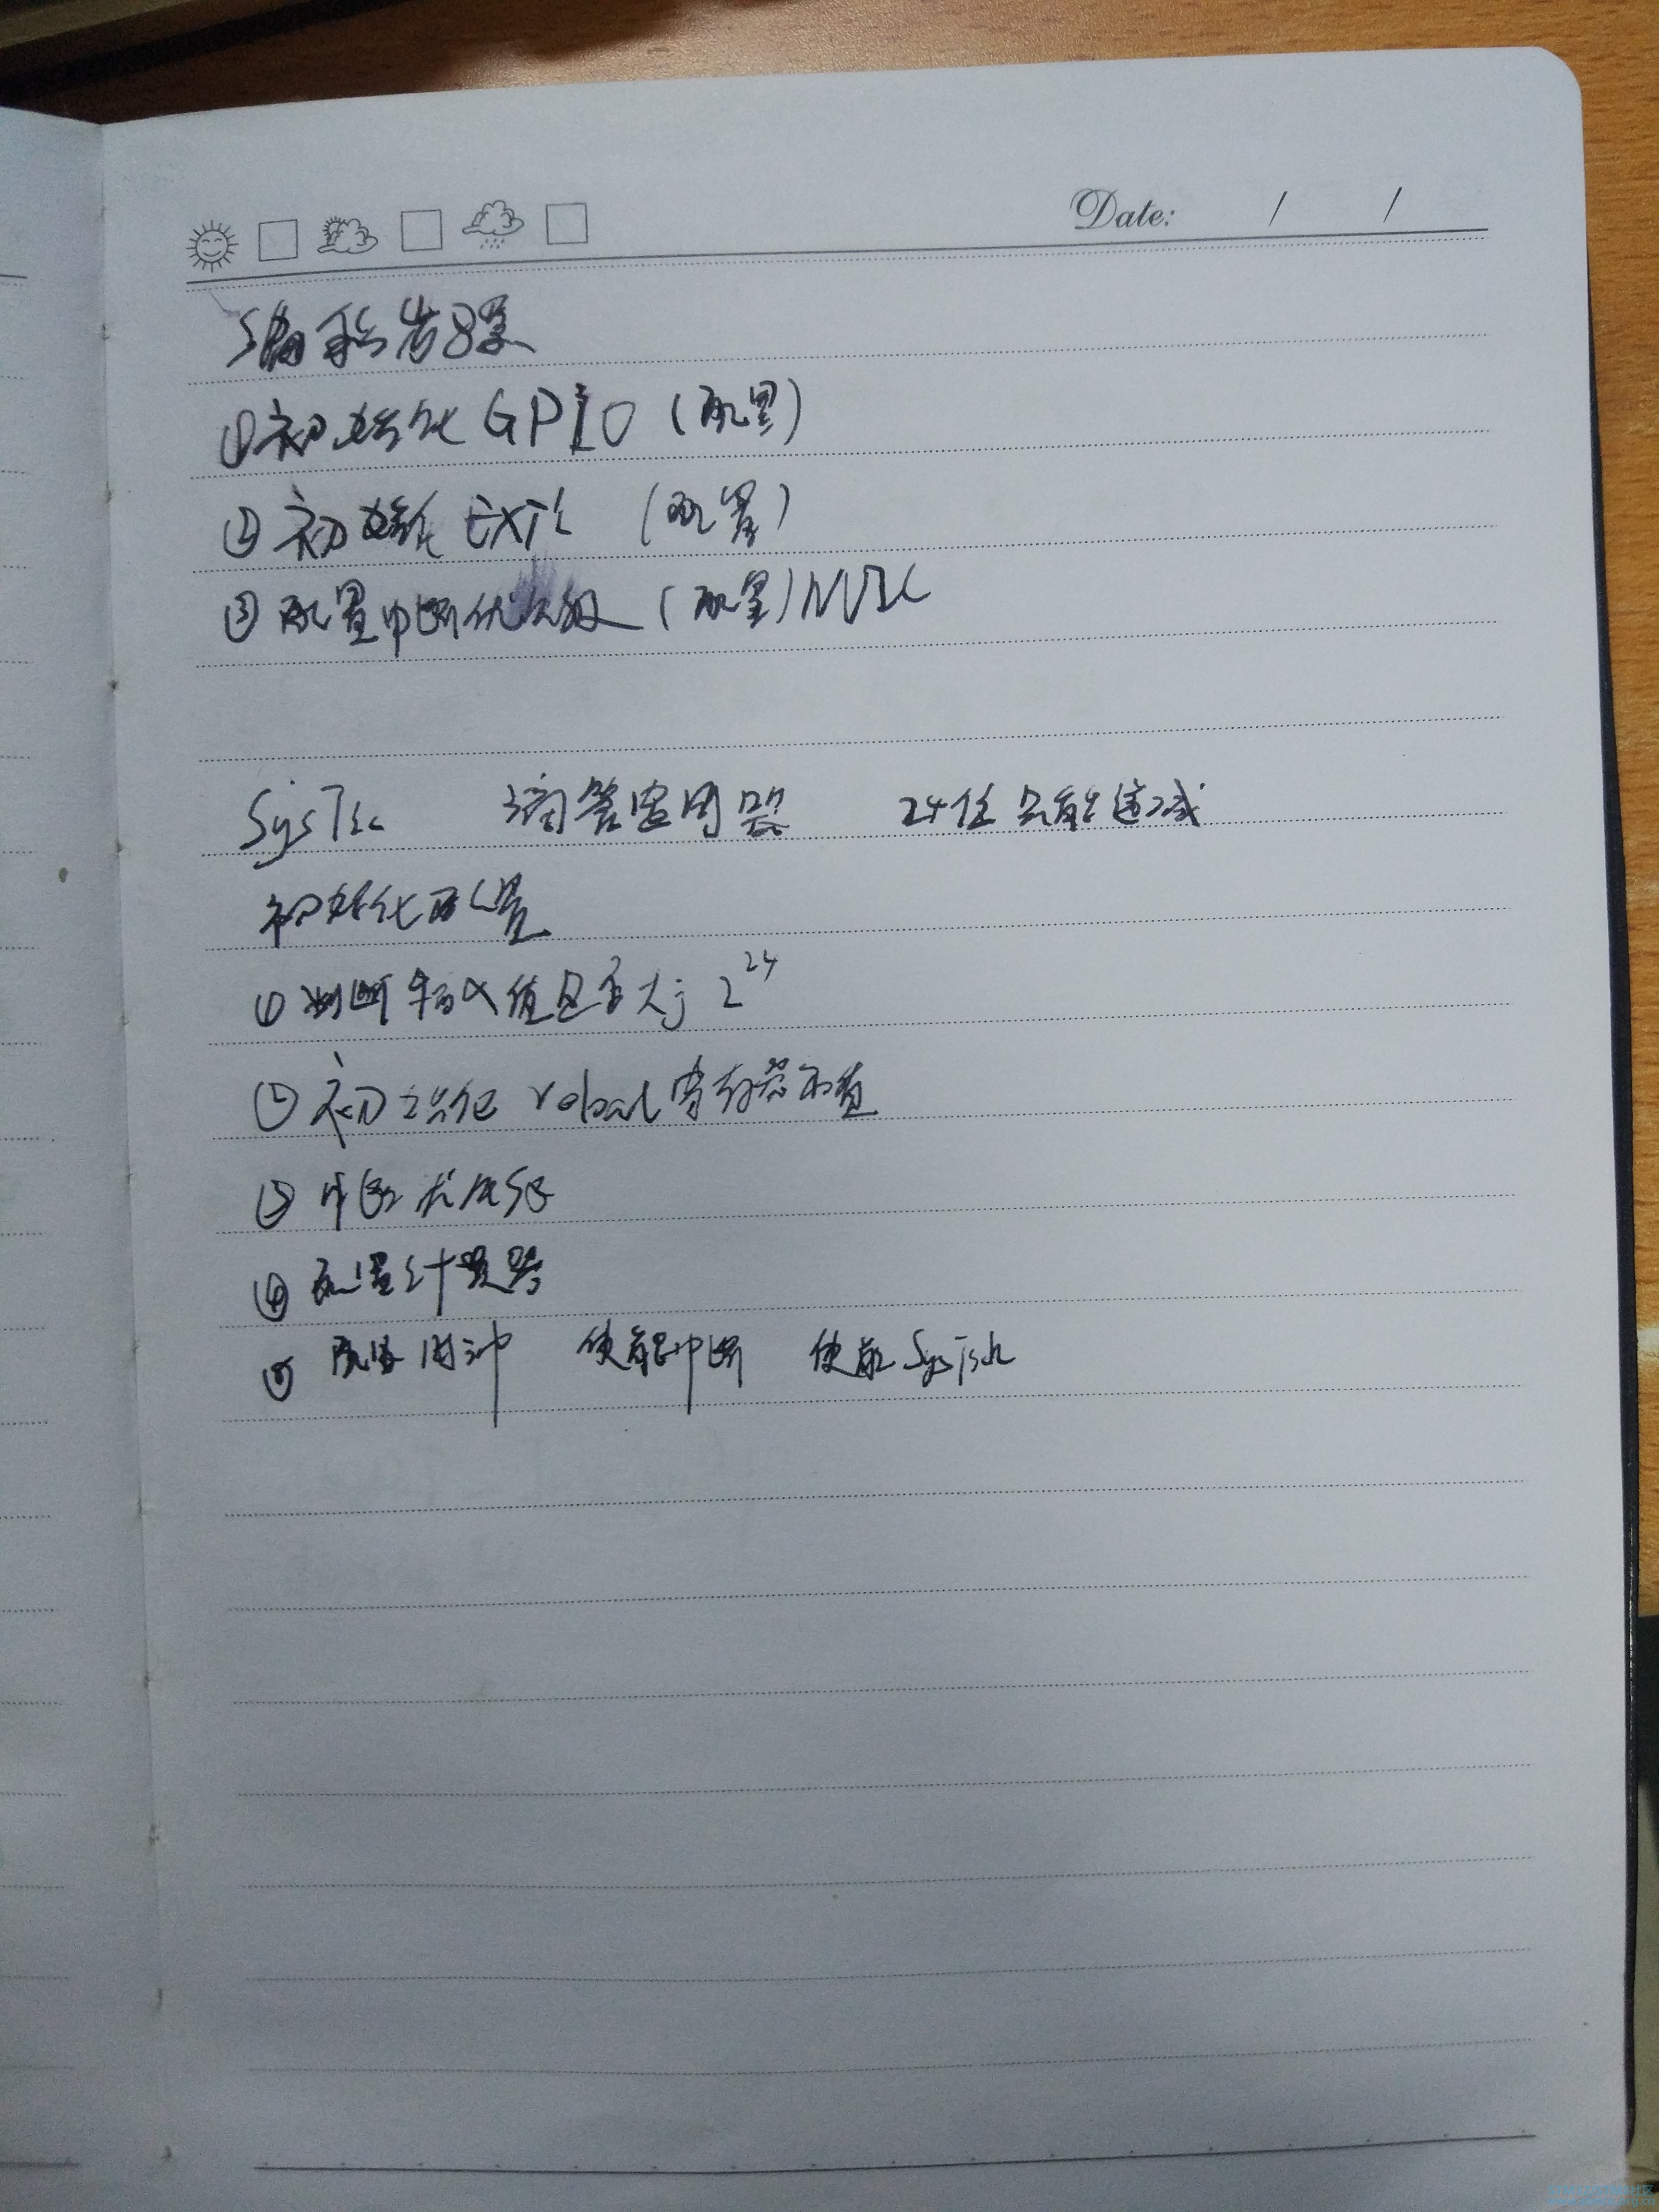 Date: / /
编程步骤
①初始化GPIO(配置)
②初始化EXTI (配置)
③配置中断优先级(配置)NVIC
24位 只能递减
初始化配置
①判断输入值是否大于2^24
②初始化 寄存器的值
③中断优先级
④配置计数器
⑤ 配置时钟 使能中断 使能